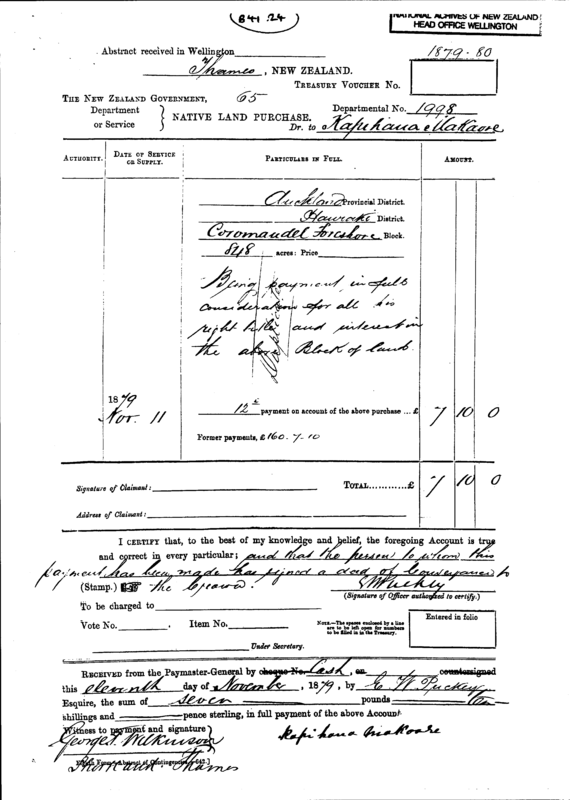 841.24
NATIONAL ARCHIVES OF NEW ZEALAND
HEAD OFFICE WELLINGTON
Abstract received in Wellington
1879-80
Thames, NEW ZEALAND.
TREASURY VOUCHER No.
THE NEW ZEALAND GOVERNMENT, 65
Departmental No. 1998
Department
or Service
NATIVE LAND PURCHASE.
Dr. to Kapihana Makaore
AUTHORITY.
DATE OF SERVICE OR SUPPLY.
PARTICULARS IN FULL.
AMOUNT.
Auckland Provincial District.
Hauraki District.
Coromandel Foreshore Block.
848 acres: Price
Being payment in full
consideration for all his
right title and interest in
the above Block of land.
Duplicate
1879
Nov. 11
12th payment on account of the above purchase ... £ 7 10 0
Former payments, £160-7-10
Signature of Claimant:
TOTAL............£ 7 10 0
Address of Claimant:
I CERTIFY that, to the best of my knowledge and belief, the foregoing Account is true
and correct in every particular; and that the person to whom this
payment has been made has signed a deed of Conveyance to
(Stamp.) the Crown.
(Signature of Officer authorized to certify.)
To be charged to
Vote No. Item No.
NOTE.—The spaces enclosed by a line are to be left open for numbers to be filled in in the Treasury.
Entered in folio
Under Secretary.
RECEIVED from the Paymaster-General by cheque No. Cash, on countersigned
this eleventh day of November, 1879, by C W Puckey
Esquire, the sum of seven pounds ten
shillings and pence sterling, in full payment of the above Account.
Witness to payment and signature
George T. Wilkinson
Kapihana Makaore
Thames